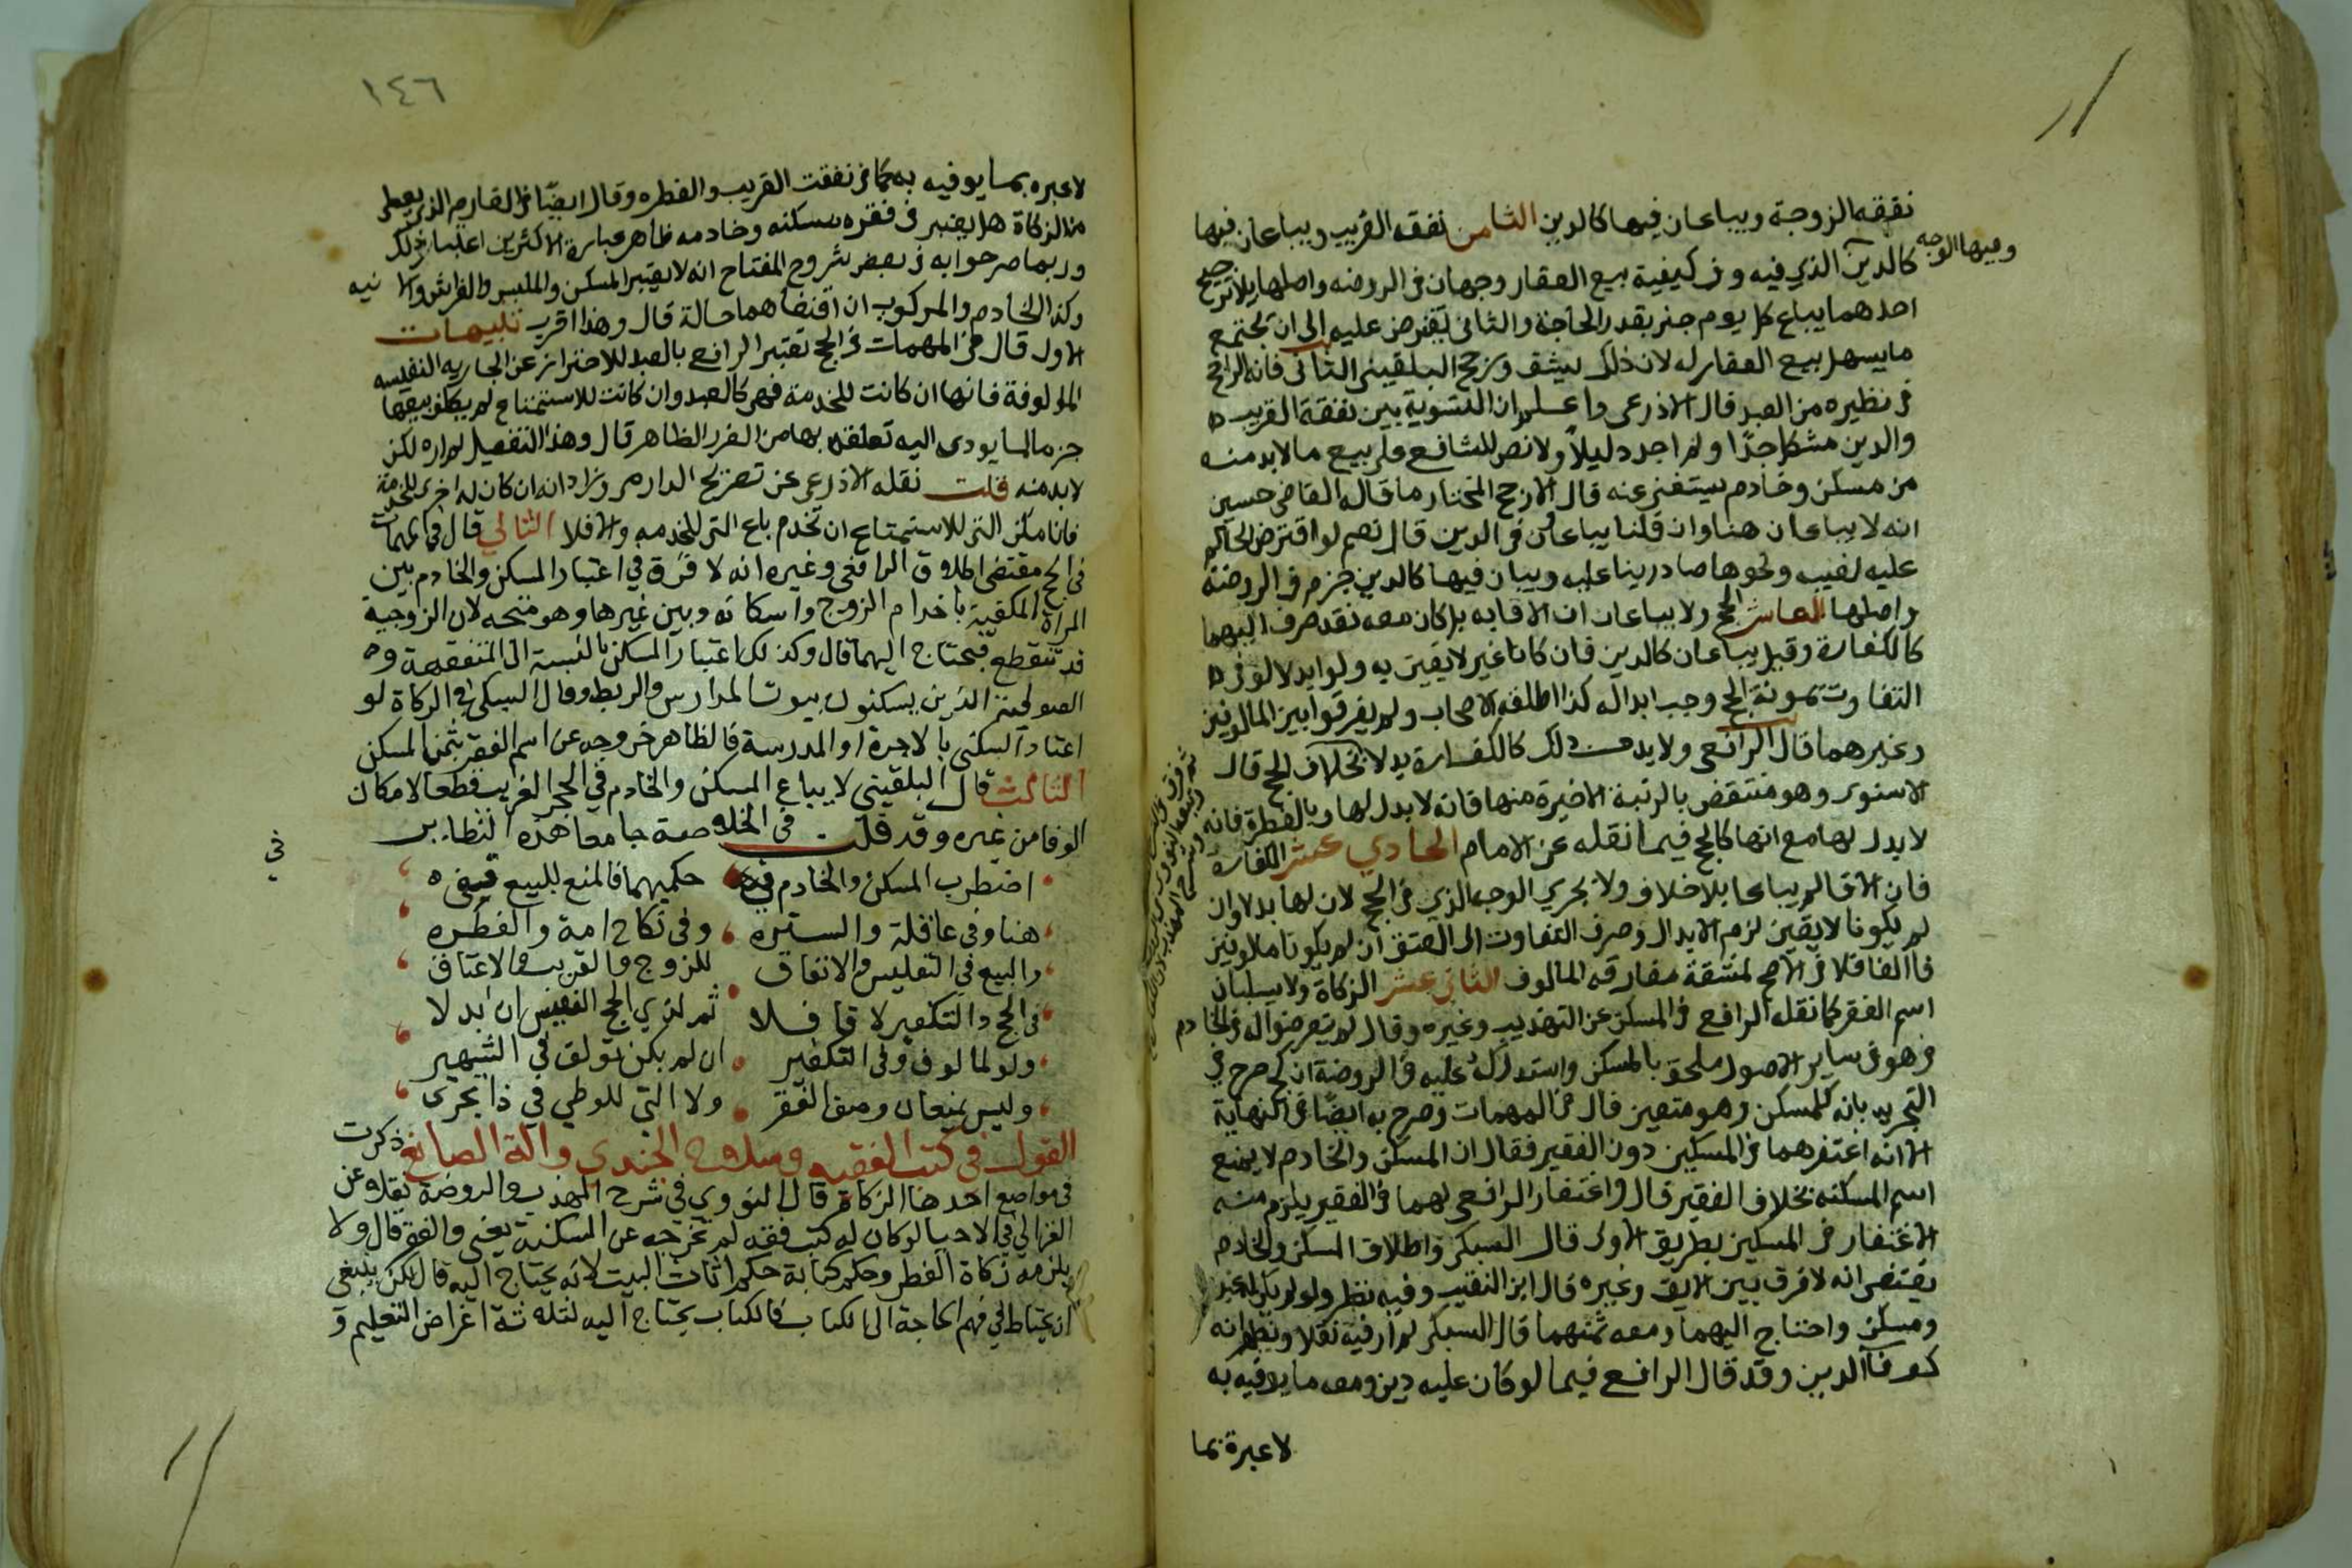 نفقة الزوجة ويباعان فيها كالدين الثامن نفقه القريب ويباعان فيها
كالدين الذي فيه وفى كيفية بيع العقار وجهان فى الروضه واصلها بلا ترجيح
وفيهما الوجه
احدهما يباع كل يوم جزء بقدر الحاجة والثانى يقترض عليه الى ان يجتمع
ما يسهل بيع العقار له لان ذلك يشق ورجح البلقينى الثانى فانه الراجح
فى نظيره من العبد قال الاذرعى واعلم ان التسوية بين نفقة القريب
والدين مشكل جدًا ولم اجد دليلاً ولا نص للشافعى على بيع مالا بد منه
من مسكن وخادم يستغنى عنه قال الارجح المختار ما قاله القاضى حسين
انه لا يباعان هنا وان قلنا يباعان فى الدين قال نعم لو اقترض الحاكم
عليه لغيبه ونحوها صار دينا عليه ويباعان فيها كالدين جزم فى الروضة
واصلها العاشر الحج ولا يباعان ان لاقا به بل كان معه نقد صرف اليهما
كالكفارة وقيل يباعان كالدين فان كانا غير لايقين به ولو ابدلا لوفى
التفاوت بمونة الحج وجب ابداله كذا اطلقه الاصحاب ولم يفرقوا بين المالوفين
وغيرهما قال الرافعى ولا بد من ذلك كالكفارة بدلا بخلاف الحج قال
الاسنوى وهو منتقض بالرتبة الاخيرة منها فانه لا بدل لها وبالفطرة فانه
لا بدل لها مع انها كالحج فيما نقله عن الامام الحادي عشر الكفارة
فان لاقا لم يباعا بلا خلاف ولا يجري الوجه الذي فى الحج لان لها بدلا وان
لم يكونا لايقين لزم الابدال وصرف التفاوت الى العتق ان لم يكونا مالوفين
فان الفا فلا فى الاصح لمشقة مفارقه المالوف الثانى عشر الزكاة ولا يسلبان
اسم الفقر كما نقله الرافعى فى المسكن عن التهذيب وغيره وقال لم يتعرضوا له فى الخادم
وهو فى ساير الاصول ملحق بالمسكن واستدرك عليه فى الروضة ان كج صرح فى
التجريد بانه كالمسكن وهو متعين قال فى المهمات وصرح به ايضًا فى النهاية
الا انه اغتفرهما فى المسكين دون الفقير فقال ان المسكن والخادم لا يمنع
اسم المسكنه بخلاف الفقير قال واغتفار الرافعى لهما فى الفقير يلزم منه
الاغتفار فى المسكين بطريق الاولى قال السبكى واطلاق المسكن والخادم
يقتضى انه لا فرق بين الايق وغيره قال ابن النقيب وفيه نظر ولو لم يكن له عبد
ومسكن واحتاج اليهما ومعه ثمنهما قال السبكى لم ار فيه نقلا ويظهر انه
كوفا الدين وقد قال الرافعى فيما لو كان عليه دين ومعه ما يوفيه به
لا عبرة بما
١٤٦
لا عبره بما يوفيه به كما فى نفقت القريب والفطره وقال ايضًا فى الغارم الذى يعطى
من الزكاة هل يعتبر فى فقره مسكنه وخادمه ظاهر عبارة الاكثرين اعتبار ذلك
وربما صرحوا به فى بعض شروح المفتاح انه لا يعتبر المسكن والملبس والفراش والانيه
وكذا الخادم والمركوب ان اقتضاهما حاله قال وهذا اقرب تنبيهات
الاول قال فى المهمات فى الحج تعبير الرافعى بالعبد للاحتراز عن الجاريه النفيسه
المالوفة فانها ان كانت للخدمة فهى كالعبد وان كانت للاستمتاع لم يكلف بيعها
جزما لما يودى اليه تعلقه بها من الضرر الظاهر قال وهذا التفصيل لم اره لكن
لا بد منه قلت نقله الاذرعى عن تصريح الدارمى وزاد انه ان كان له اخرى للخدمة
فان امكن التى للاستمتاع ان تخدم باع التى للخدمه والا فلا الثانى قال فى المهمات
فى الحج مقتضى اطلاق الرافعى وغيره انه لا فرق في اعتبار المسكن والخادم بين
المراة المكفية باخدام الزوج واسكانه وبين غيرها وهو متجه لان الزوجية
قد تنقطع فيحتاج اليهما قال وكذلك اعتبار المسكن بالنسبة الى المتفقهة و
الصوفية الذين يسكنون بيوت المدارس والربط وقال السبكى في الزكاة لو
اعتاد السكنى بالاجرة او المدرسة فالظاهر خروجه عن اسم الفقر بثمن المسكن
الثالث قال البلقيني لا يباع المسكن والخادم في الحجر الغريب قطعا لامكان
الوفا من غيره وقد قلت فى الخلاصة جامعا هذه النظاير
في
اضطرب المسكن والخادم في حكميهما فالمنع للبيع قيفى
هنا وفى عاقلة والستره وفى نكاح امة والفطره
والبيع في التفليس والانفاق للزوج والقريب والاعتاق
فى الحج والتكفير لاقا فلا ثم لذي الحج النفيس ان ابدلا
ولو لمالوف وفى التكفير ان لم يكن تولف في الشهير
وليس يمنعان وصف الفقر ولا التى للوطي في ذا تجرى
القول فى كتب الفقيه وسلاح الجندي والة الصانع ذكرت
فى مواضع احدها الزكاة قال النووي في شرح المهذب والروضة نقلا عن
الغزالي في الاحيا لو كان له كتب فقه لم تخرجه عن المسكنة يعنى والفقر قال ولا
يلزمه زكاة الفطر وحكم كتابه حكم اثاث البيت لانه يحتاج اليه قال لكن ينبغى
ان يحتاط في فهم الحاجة الى الكتاب فالكتاب يحتاج اليه لثلاثة اغراض التعليم و